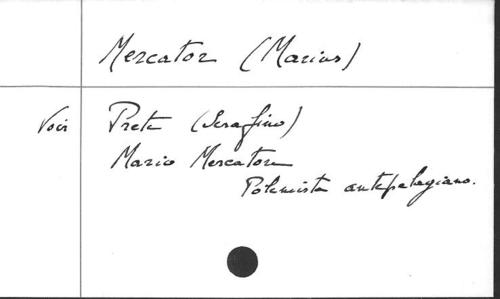 Mercator (Marius)
Voir Prete (Serafino)
Mario Mercatore
Polemista antepelagiano.